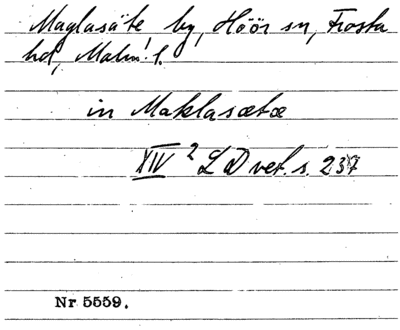 Maglasäte by, Höör sn, Frosta
hd, Malm. l.
in Maklasætæ
XIV 2 LD vet. s. 237
Nr 5559.